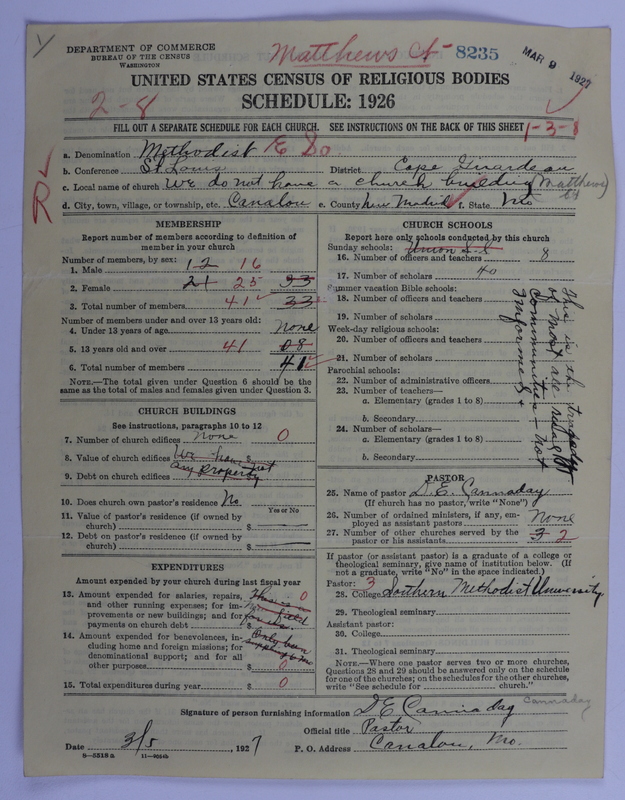 DEPARTMENT OF COMMERCE
BUREAU OF THE CENSUS
WASHINGTON
Matthews Ct - 8235
MAR 9 1927
UNITED STATES CENSUS OF RELIGIOUS BODIES
SCHEDULE: 1926
2-8
FILL OUT A SEPARATE SCHEDULE FOR EACH CHURCH. SEE INSTRUCTIONS ON THE BACK OF THIS SHEET
1-3-8
a. Denomination Methodist E So
b. Conference St. Louis District Cape Girardeau
c. Local name of church We do not have a church building (Matthews Ct)
d. City, town, village, or township, etc. Canalou e. County New Madrid f. State Mo
R
MEMBERSHIP
Report number of members according to definition of member in your church
Number of members by sex:
1. Male 12 16
2. Female 21 25 33
3. Total number of members 41 33
Number of members under and over 13 years old:
4. Under 13 years of age None
5. 13 years old and over 41 08
6. Total number of members 41
NOTE.—The total given under Question 6 should be the same as the total of males and females given under Question 3.
CHURCH BUILDINGS
See instructions, paragraphs 10 to 12
7. Number of church edifices none 0
8. Value of church edifices We have not
9. Debt on church edifices any property
10. Does church own pastor's residence No
Yes or No
11. Value of pastor's residence (if owned by church) $
12. Debt on pastor's residence (if owned by church) $
EXPENDITURES
Amount expended by your church during last fiscal year
13. Amount expended for salaries, repairs, and other running expenses; for improvements or new buildings; and for payments on church debt $ 0
14. Amount expended for benevolences, including home and foreign missions; for denominational support; and for all other purposes $ Only been 0
15. Total expenditures during year $ 0
CHURCH SCHOOLS
Report here only schools conducted by this church
Sunday schools: Union S.S.
16. Number of officers and teachers 8
17. Number of scholars 40
Summer vacation Bible schools:
18. Number of officers and teachers
19. Number of scholars
Week-day religious schools:
20. Number of officers and teachers
21. Number of scholars
Parochial schools:
22. Number of administrative officers
23. Number of teachers—
a. Elementary (grades 1 to 8)
b. Secondary
24. Number of scholars—
a. Elementary (grades 1 to 8)
b. Secondary
This is the
of most all
Communities - not
informed
PASTOR
25. Name of pastor D. E. Cannaday
(If church has no pastor, write "None")
26. Number of ordained ministers, if any, employed as assistant pastors None
27. Number of other churches served by the pastor or his assistants 3 2
If pastor (or assistant pastor) is a graduate of a college or theological seminary, give name of institution below. (If not a graduate, write "No" in the space indicated.)
Pastor: 3
28. College Southern Methodist University
29. Theological seminary
Assistant pastor:
30. College
31. Theological seminary
NOTE.—Where one pastor serves two or more churches, Questions 28 and 29 should be answered only on the schedule for one of the churches; on the schedules for the other churches, write "See schedule for church."
Signature of person furnishing information D E Cannaday Cannaday
Official title Pastor
Date 3/5, 1927 P. O. Address Canalou, Mo.